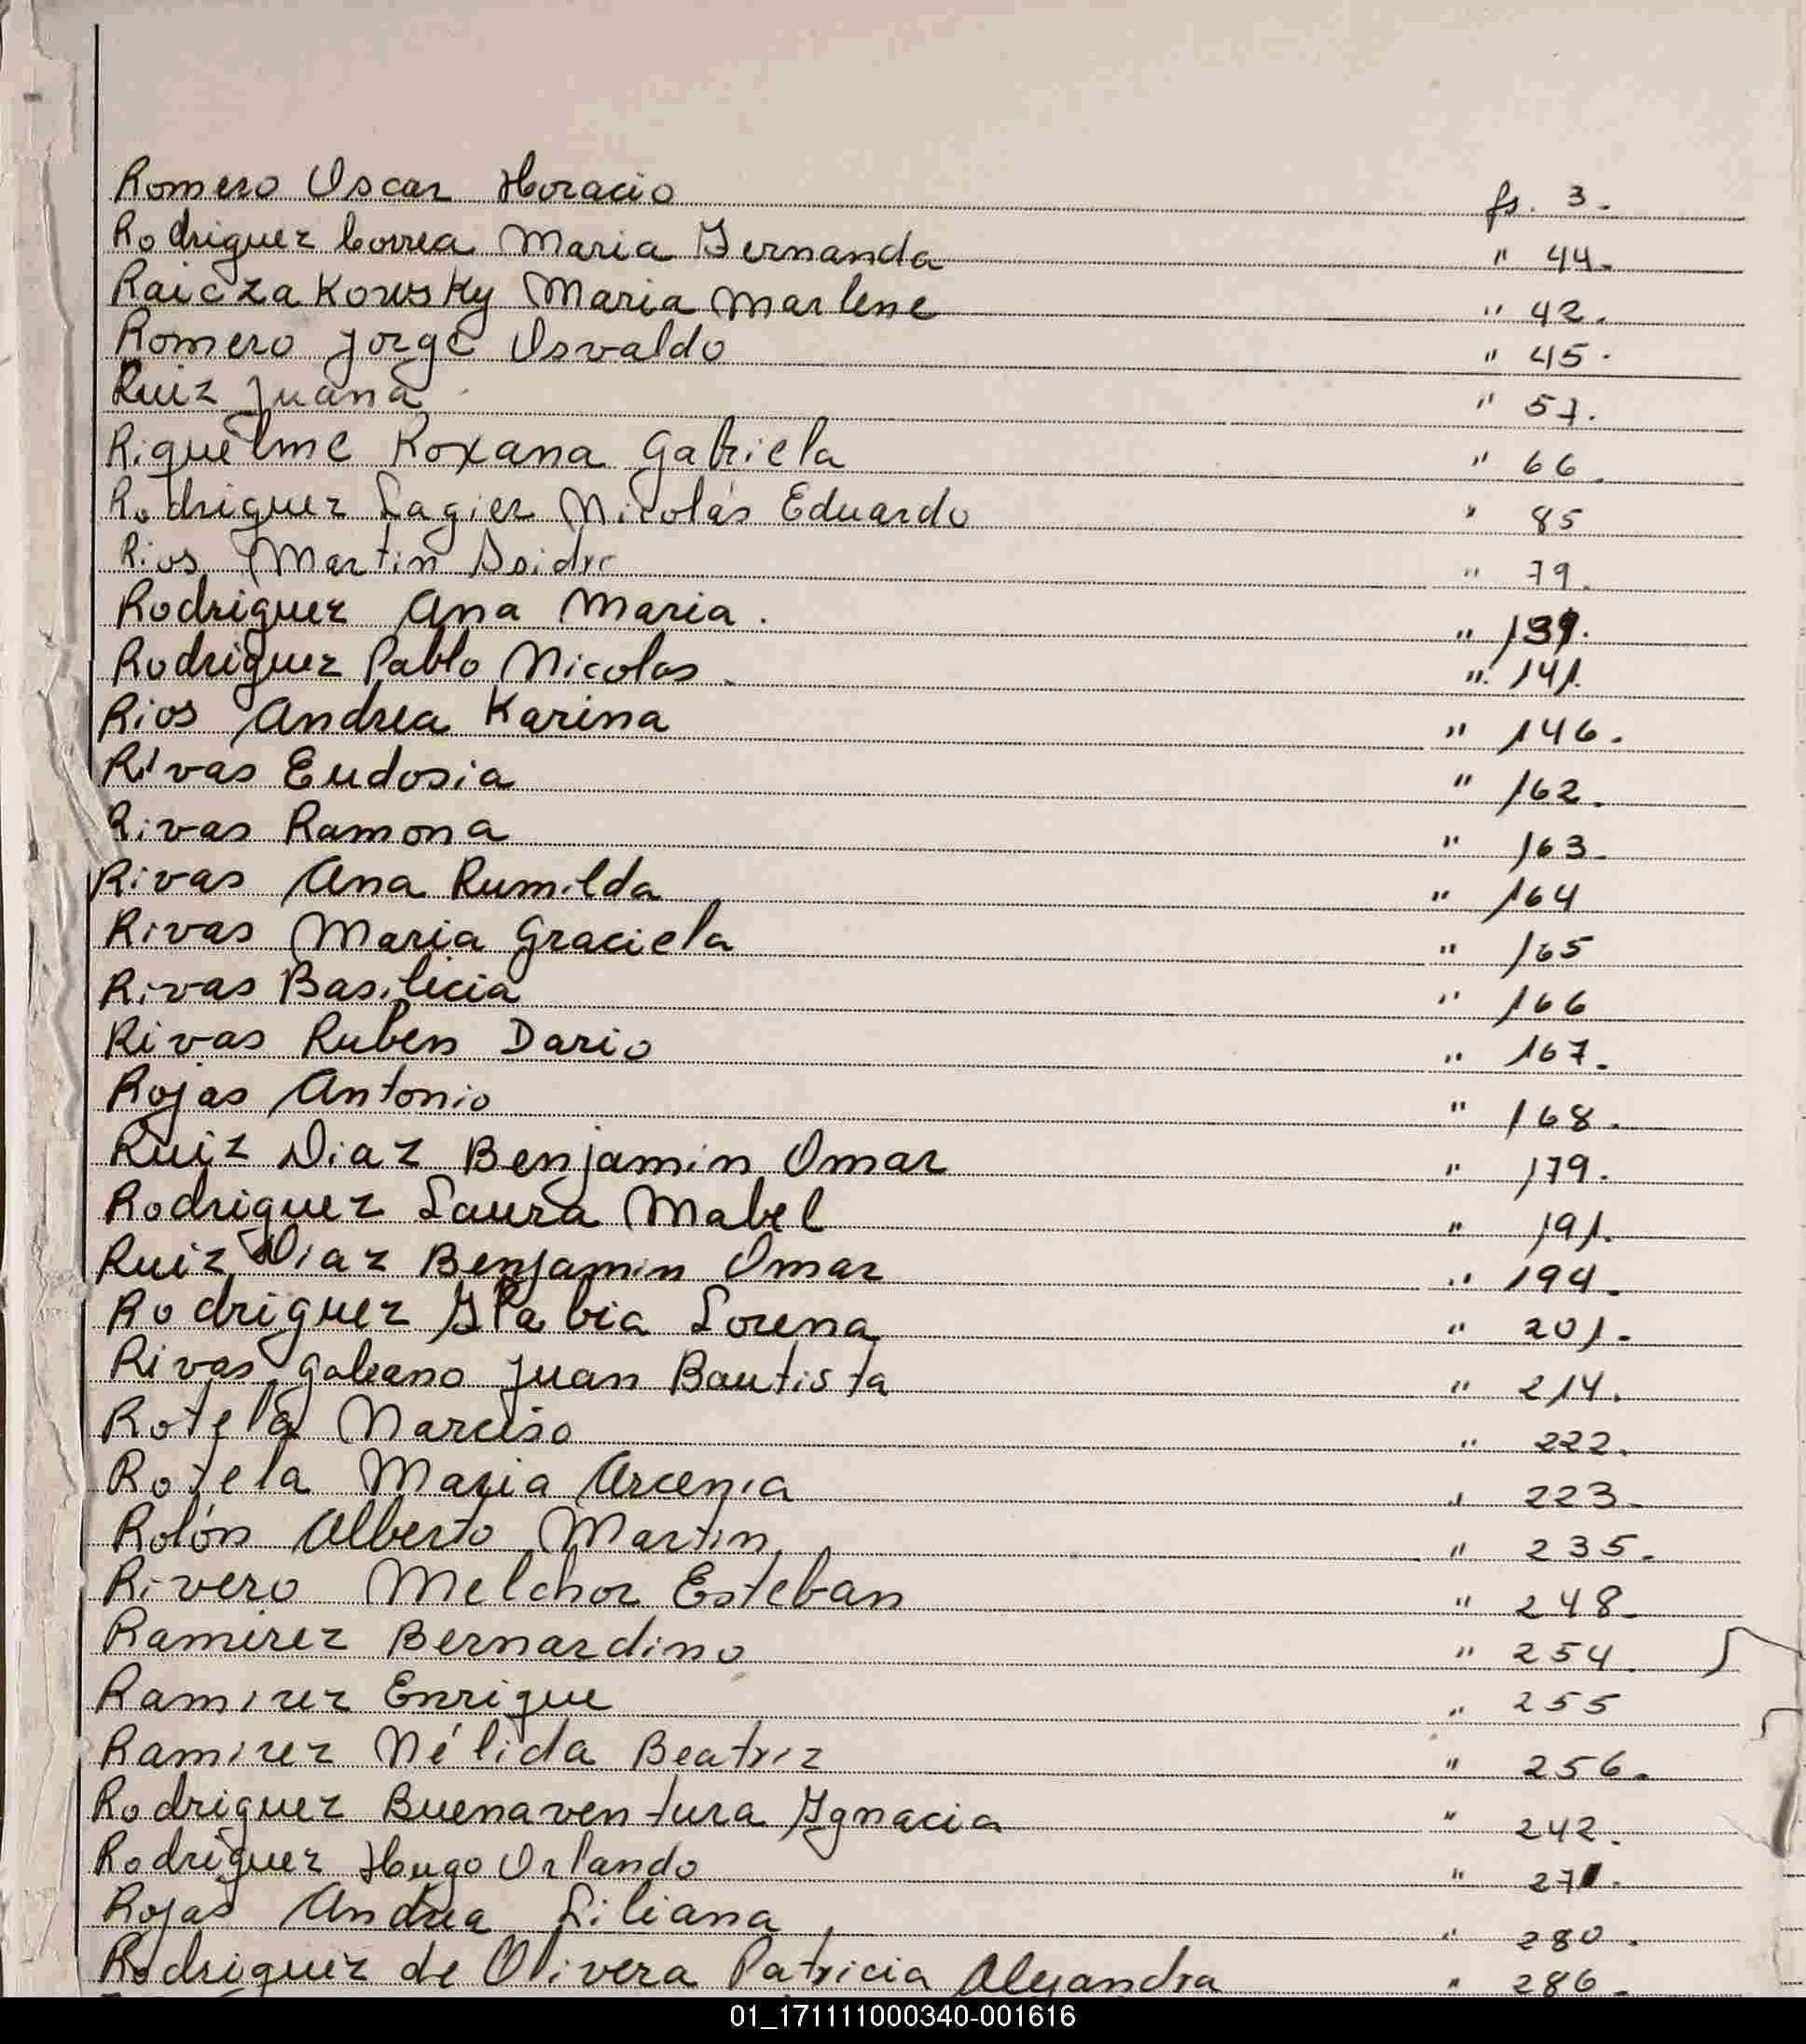 Romero Oscar Horacio fs. 3.
Rodriguez Correa Maria Fernanda " 44.
Raiczakowsky Maria Marlene " 42.
Romero Jorge Osvaldo " 45.
Ruiz Juana " 57.
Riquelme Roxana Gabriela " 66.
Rodriguez Lagier Nicolás Eduardo " 85
Rios Martin Isidro " 79.
Rodriguez Ana Maria. " 139.
Rodriguez Pablo Nicolas. " 141.
Rios Andrea Karina " 146.
Rivas Eudosia " 162.
Rivas Ramona " 163.
Rivas Ana Rumilda " 164
Rivas Maria Graciela " 165
Rivas Basilicia " 166
Rivas Ruben Dario " 167.
Rojas Antonio " 168.
Ruiz Diaz Benjamin Omar " 179.
Rodriguez Laura Mabel " 191.
Ruiz Diaz Benjamin Omar " 194.
Rodriguez Flabia Lorena " 201.
Rivas Galeano Juan Bautista " 214.
Rotela Narciso " 222.
Rotela Maria Arcenia " 223.
Rolón Alberto Martin " 235.
Rivero Melchor Esteban " 248.
Ramirez Bernardino " 254.
Ramirez Enrique " 255
Ramirez Nélida Beatriz " 256.
Rodriguez Buenaventura Ygnacia " 242.
Rodriguez Hugo Orlando " 271.
Rojas Andrea Liliana " 280.
Rodriguez de Olivera Patricia Alejandra " 286.
01_171111000340-001616